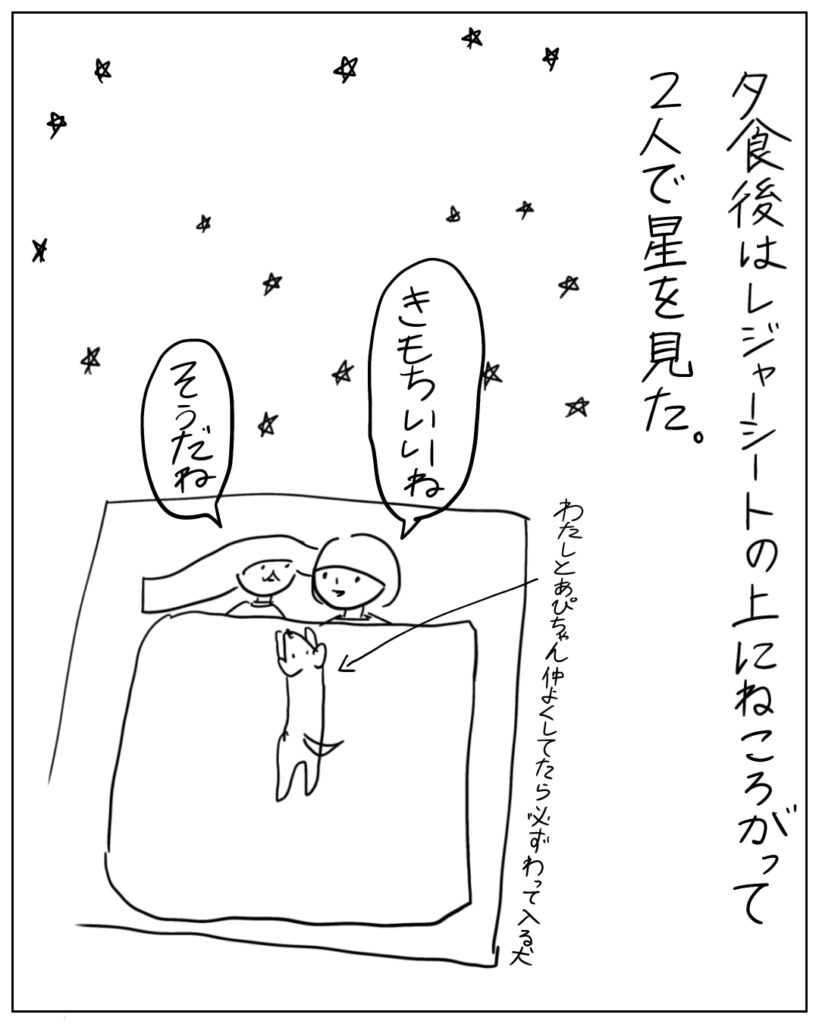 夕食後はレジャーシートの上にねころがって
2人で星を見た。
きもちいいね
そうだね
わたしとあぴちゃん仲よくしてたら必ずわって入る犬